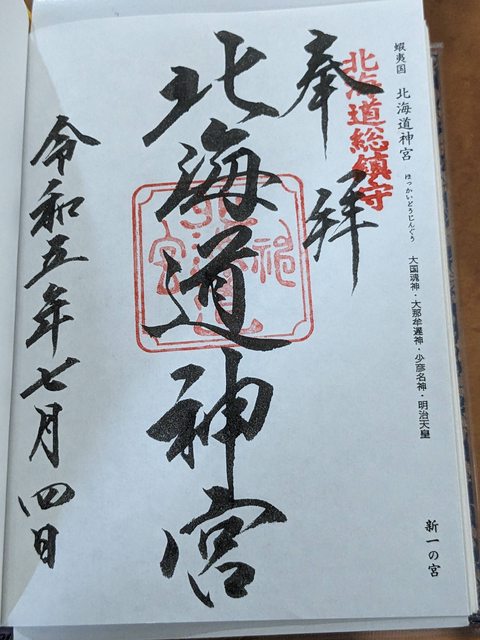 蝦夷国 北海道神宮
ほっかいどうじんぐう
大国魂神・大那牟遅神・少彦名神・明治天皇
新一の宮
北海道総鎮守
奉拝
北海道神宮
令和五年七月四日